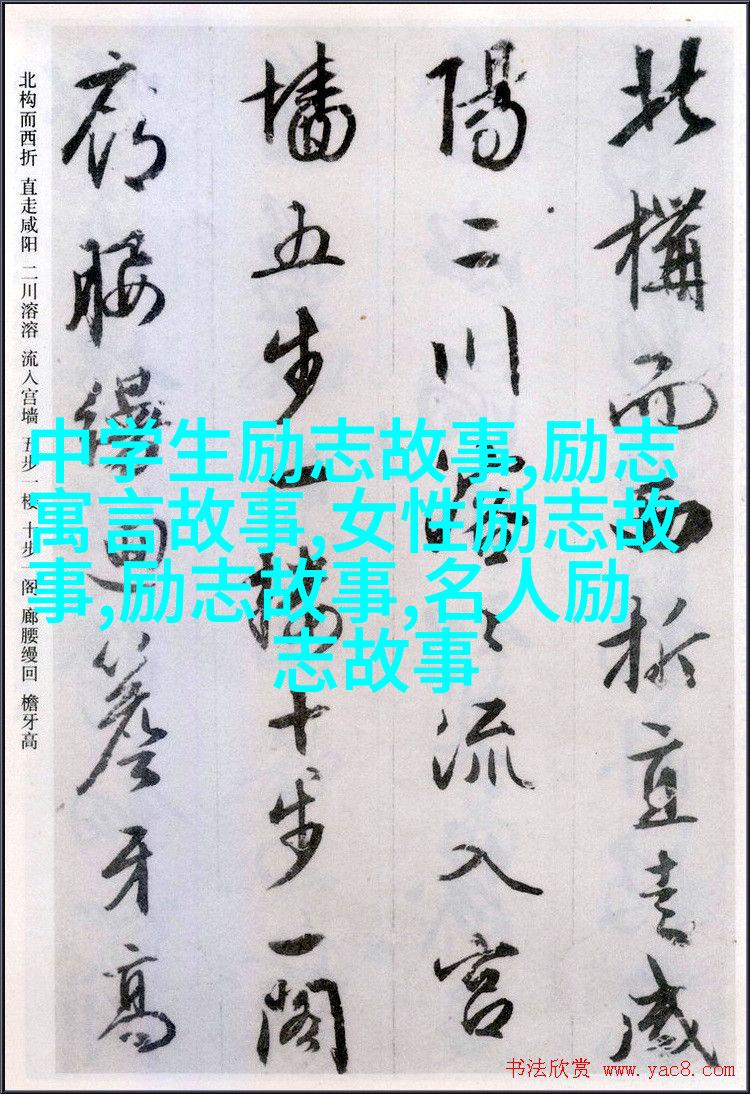 北構而西折直走咸
陽二川溶々流入宮
墻五步一樓十步一閣
廊腰縵迴簷牙高
北构而西折 直走咸阳 二川溶溶 流入宫墙 五步一楼 十步一阁 廊腰缦回 檐牙高
中学生励志故事,励志
寓言故事,女性励志故
事,励志故事,名人励
志故事
书法欣赏 www.yac8.com